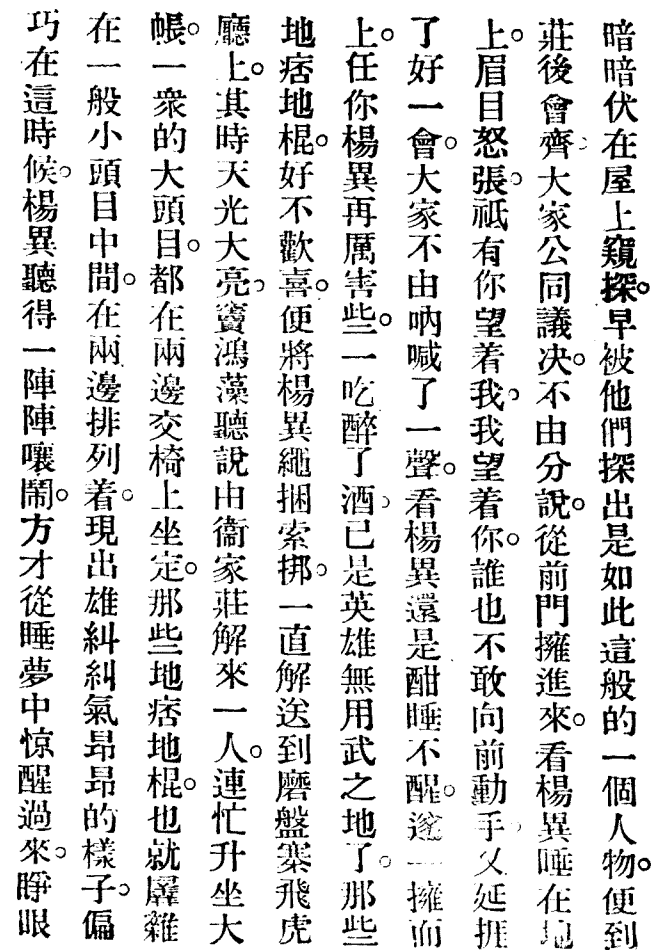 暗暗伏在屋上窺探。早被他們探出是如此這般的一個人物。便到
莊後會齊。大家公同議决。不由分說。從前門擁進來。看楊異唾在地
上。眉目怒張。祗有你望着我。我望着你。誰也不敢向前動手。又延捱
了好一會。大家不由吶喊了一聲。看楊異還是酣睡不醒。遂一擁而
上。任你楊異再厲害些。一吃醉了酒。已是英雄無用武之地了。那些
地痞地棍。好不歡喜。便將楊異繩捆索挷。一直解送到磨盤寨飛虎
廳上。其時天光大亮。竇鴻藻聽說由衞家莊解來一人。連忙升坐大
帳。一衆的大頭目。都在兩邊交椅上坐定。那些地痞地棍。也就羼雜
在一般小頭目中間。在兩邊排列着。現出雄糾糾氣昂昂的樣子。偏
巧在這時候。楊異聽得一陣陣嚷鬧。方才從睡夢中惊醒過來。睜眼